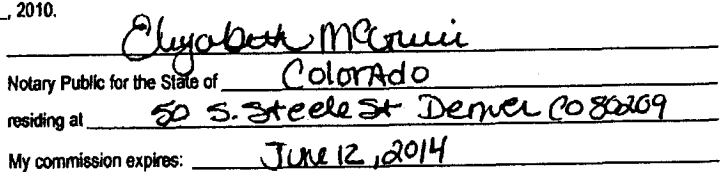 _, 2010.
Elizabeth McGuire
Notary Public for the State of Colorado
residing at 50 S. Steele St Denver CO 80209
My commission expires: June 12, 2014